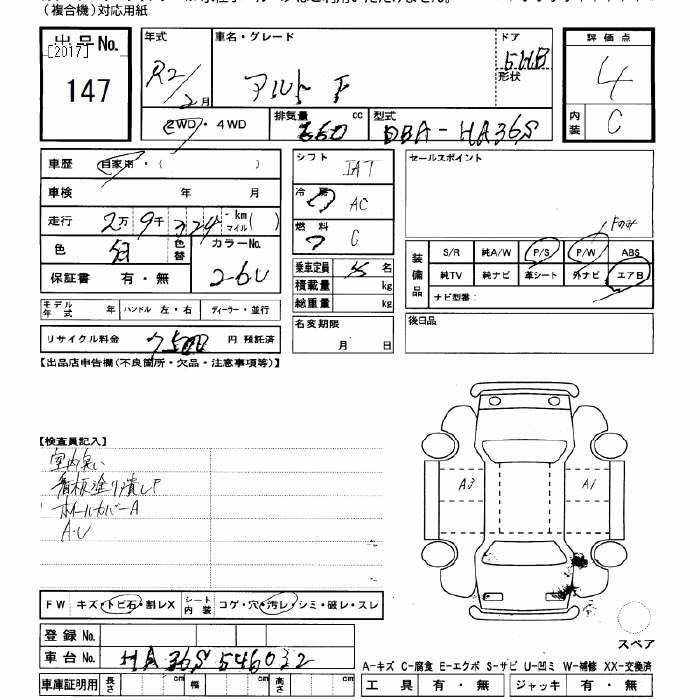 (複合機)対応用紙
出品No.
[2017]
147
年式
R2/2月
車名・グレード
アルト F
ドア
5HB
形状
評価点
4
内装
C
2WD・4WD
排気量
660
cc
型式
DBA-HA36S
車歴
自家用・( )
車検 年 月
走行
2万 9千 324 km
マイル( )
色
色替
カラーNo.
26U
保証書 有・無
シフト
IAT
冷房
AC
燃料
C
乗車定員
名
積載量 kg
総重量 kg
セールスポイント
Fのみ
装備品
S/R 純A/W P/S P/W ABS
純TV 純ナビ 革シート 外ナビ エアB
ナビ型番:
モデル年式 年
ハンドル 左・右
ディーラー・並行
名変期限
月 日
後日品
リサイクル料金
円 預託済
【出品店申告欄(不良箇所・欠品・注意事項等)】
【検査員記入】
室内臭い
看板塗り潰しF
ホイールカバーA
A・U
A3
A1
FW キズ・トビ石・割レX
シート内装 コゲ・穴・汚レ・シミ・破レ・スレ
スペア
登録No.
車台No.
HA36S 546032
A-キズ C-腐食 E-エクボ S-サビ U-凹ミ W-補修 XX-交換済
車庫証明用 長さ cm 幅 cm 高さ cm
工具 有・無 ジャッキ 有・無